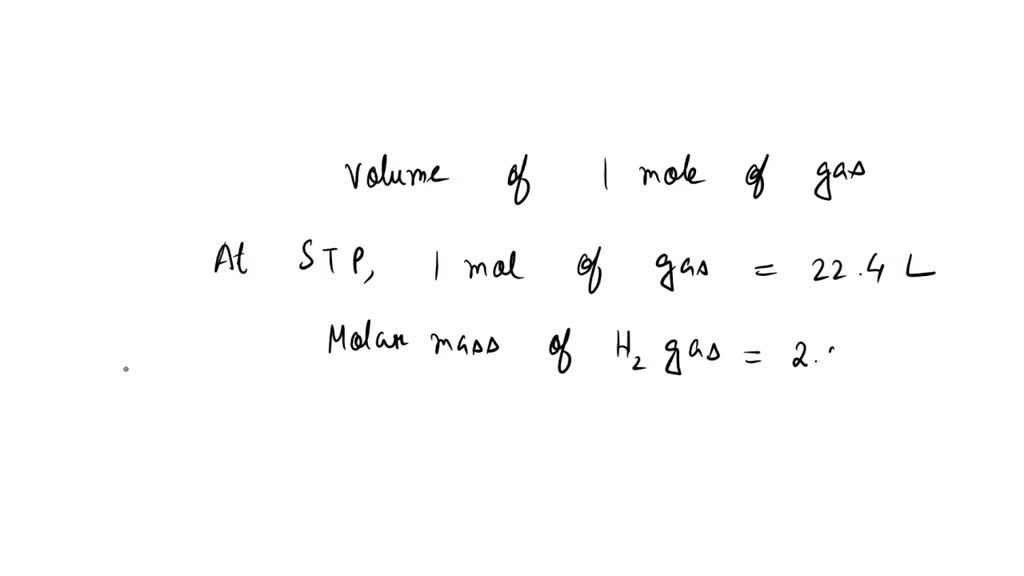 Volume of 1 mole of gas
At STP, 1 mol of gas = 22.4 L
Molar mass of H₂ gas = 2.